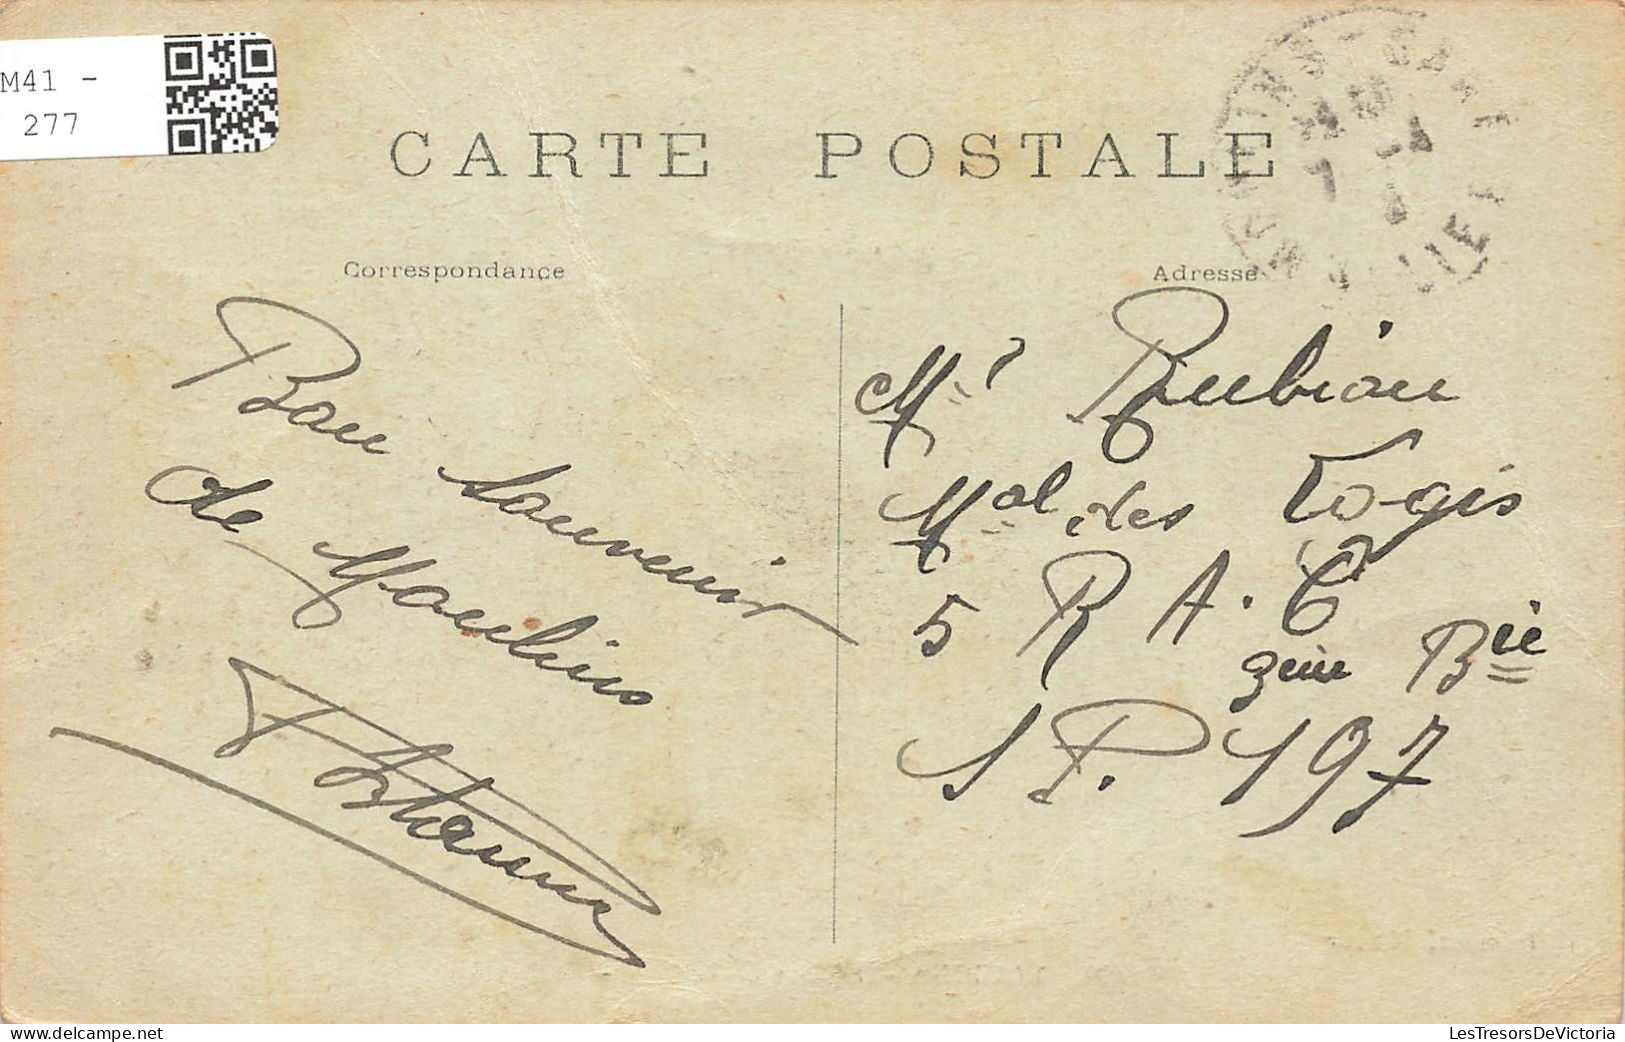 M41 -
277
CARTE POSTALE
Correspondance
Adresse
Bon souvenir
de Moulins
Mr Rubian
Mal des Logis
5 R A. C
3eme Bie
S P. 197
LesTresorsDeVictoria